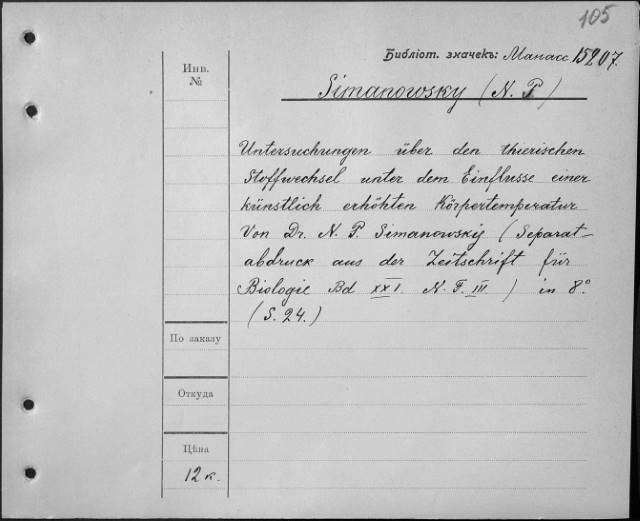 105
Библіот. значекъ: Манасс. 15207.
Инв.
№
Simanowsky (N. P.)
Untersuchungen über den thierischen
Stoffwechsel unter dem Einflusse einer
künstlich erhöhten Körpertemperatur
Von Dr. N. P. Simanowskij (Separat-
abdruck aus der Zeitschrift für
Biologie Bd XXI. N. F. III.) in 8.°
(S. 24.)
По заказу
Откуда
Цѣна
12 к.